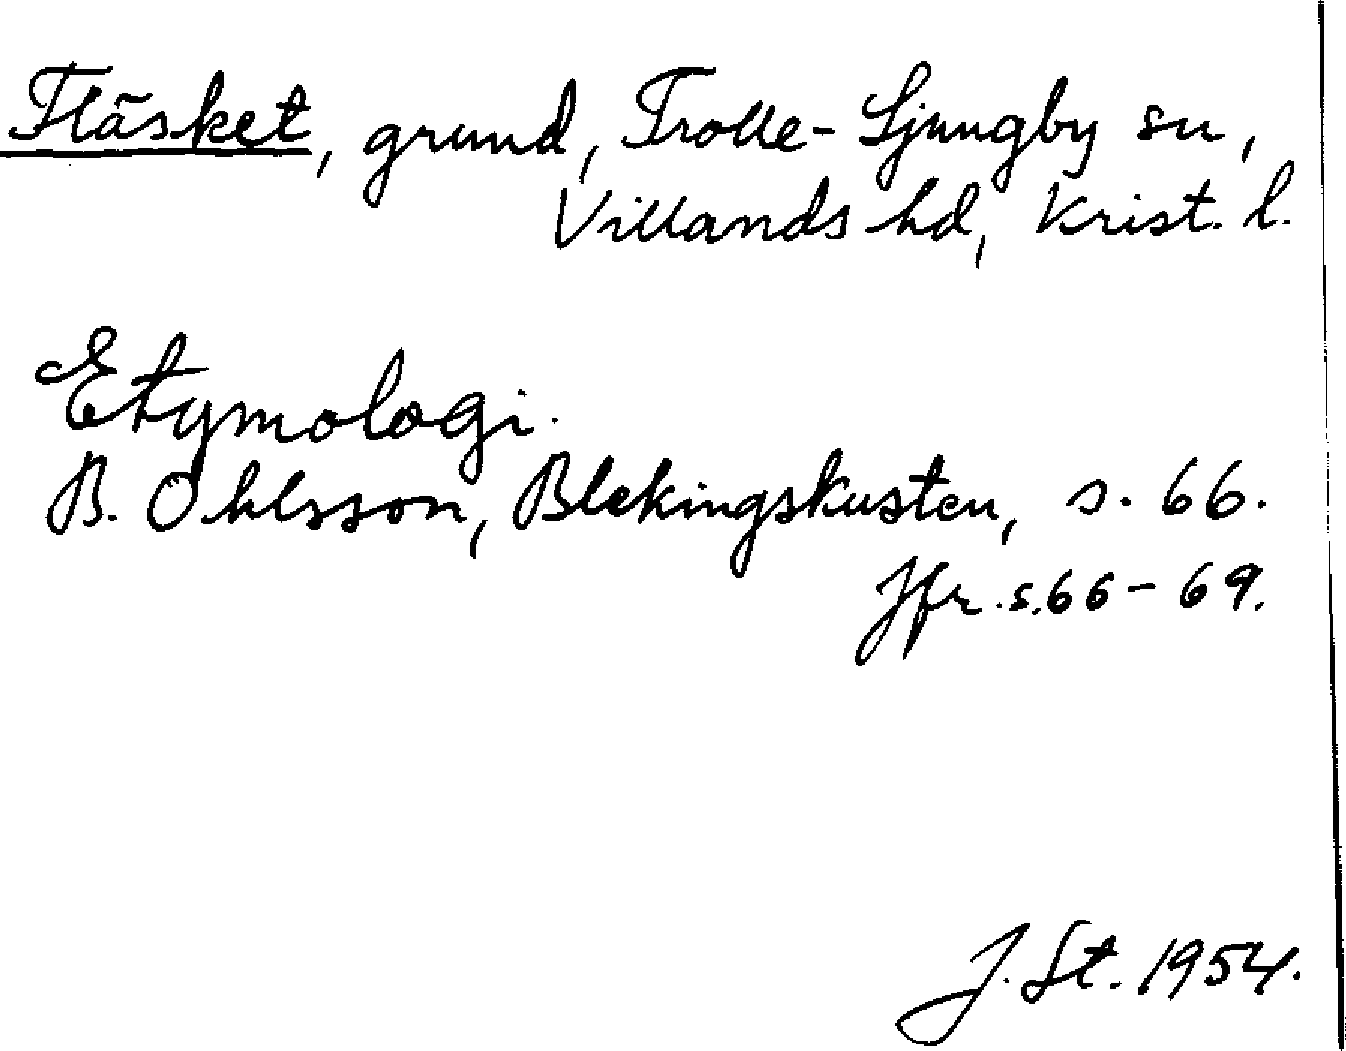 Fläsket, grund, Trolle-Ljungby sn,
Villands hd, Krist. l.
Etymologi.
B. Ohlsson, Blekingskusten, s. 66.
Jfr. s. 66-69.
J. St. 1954.